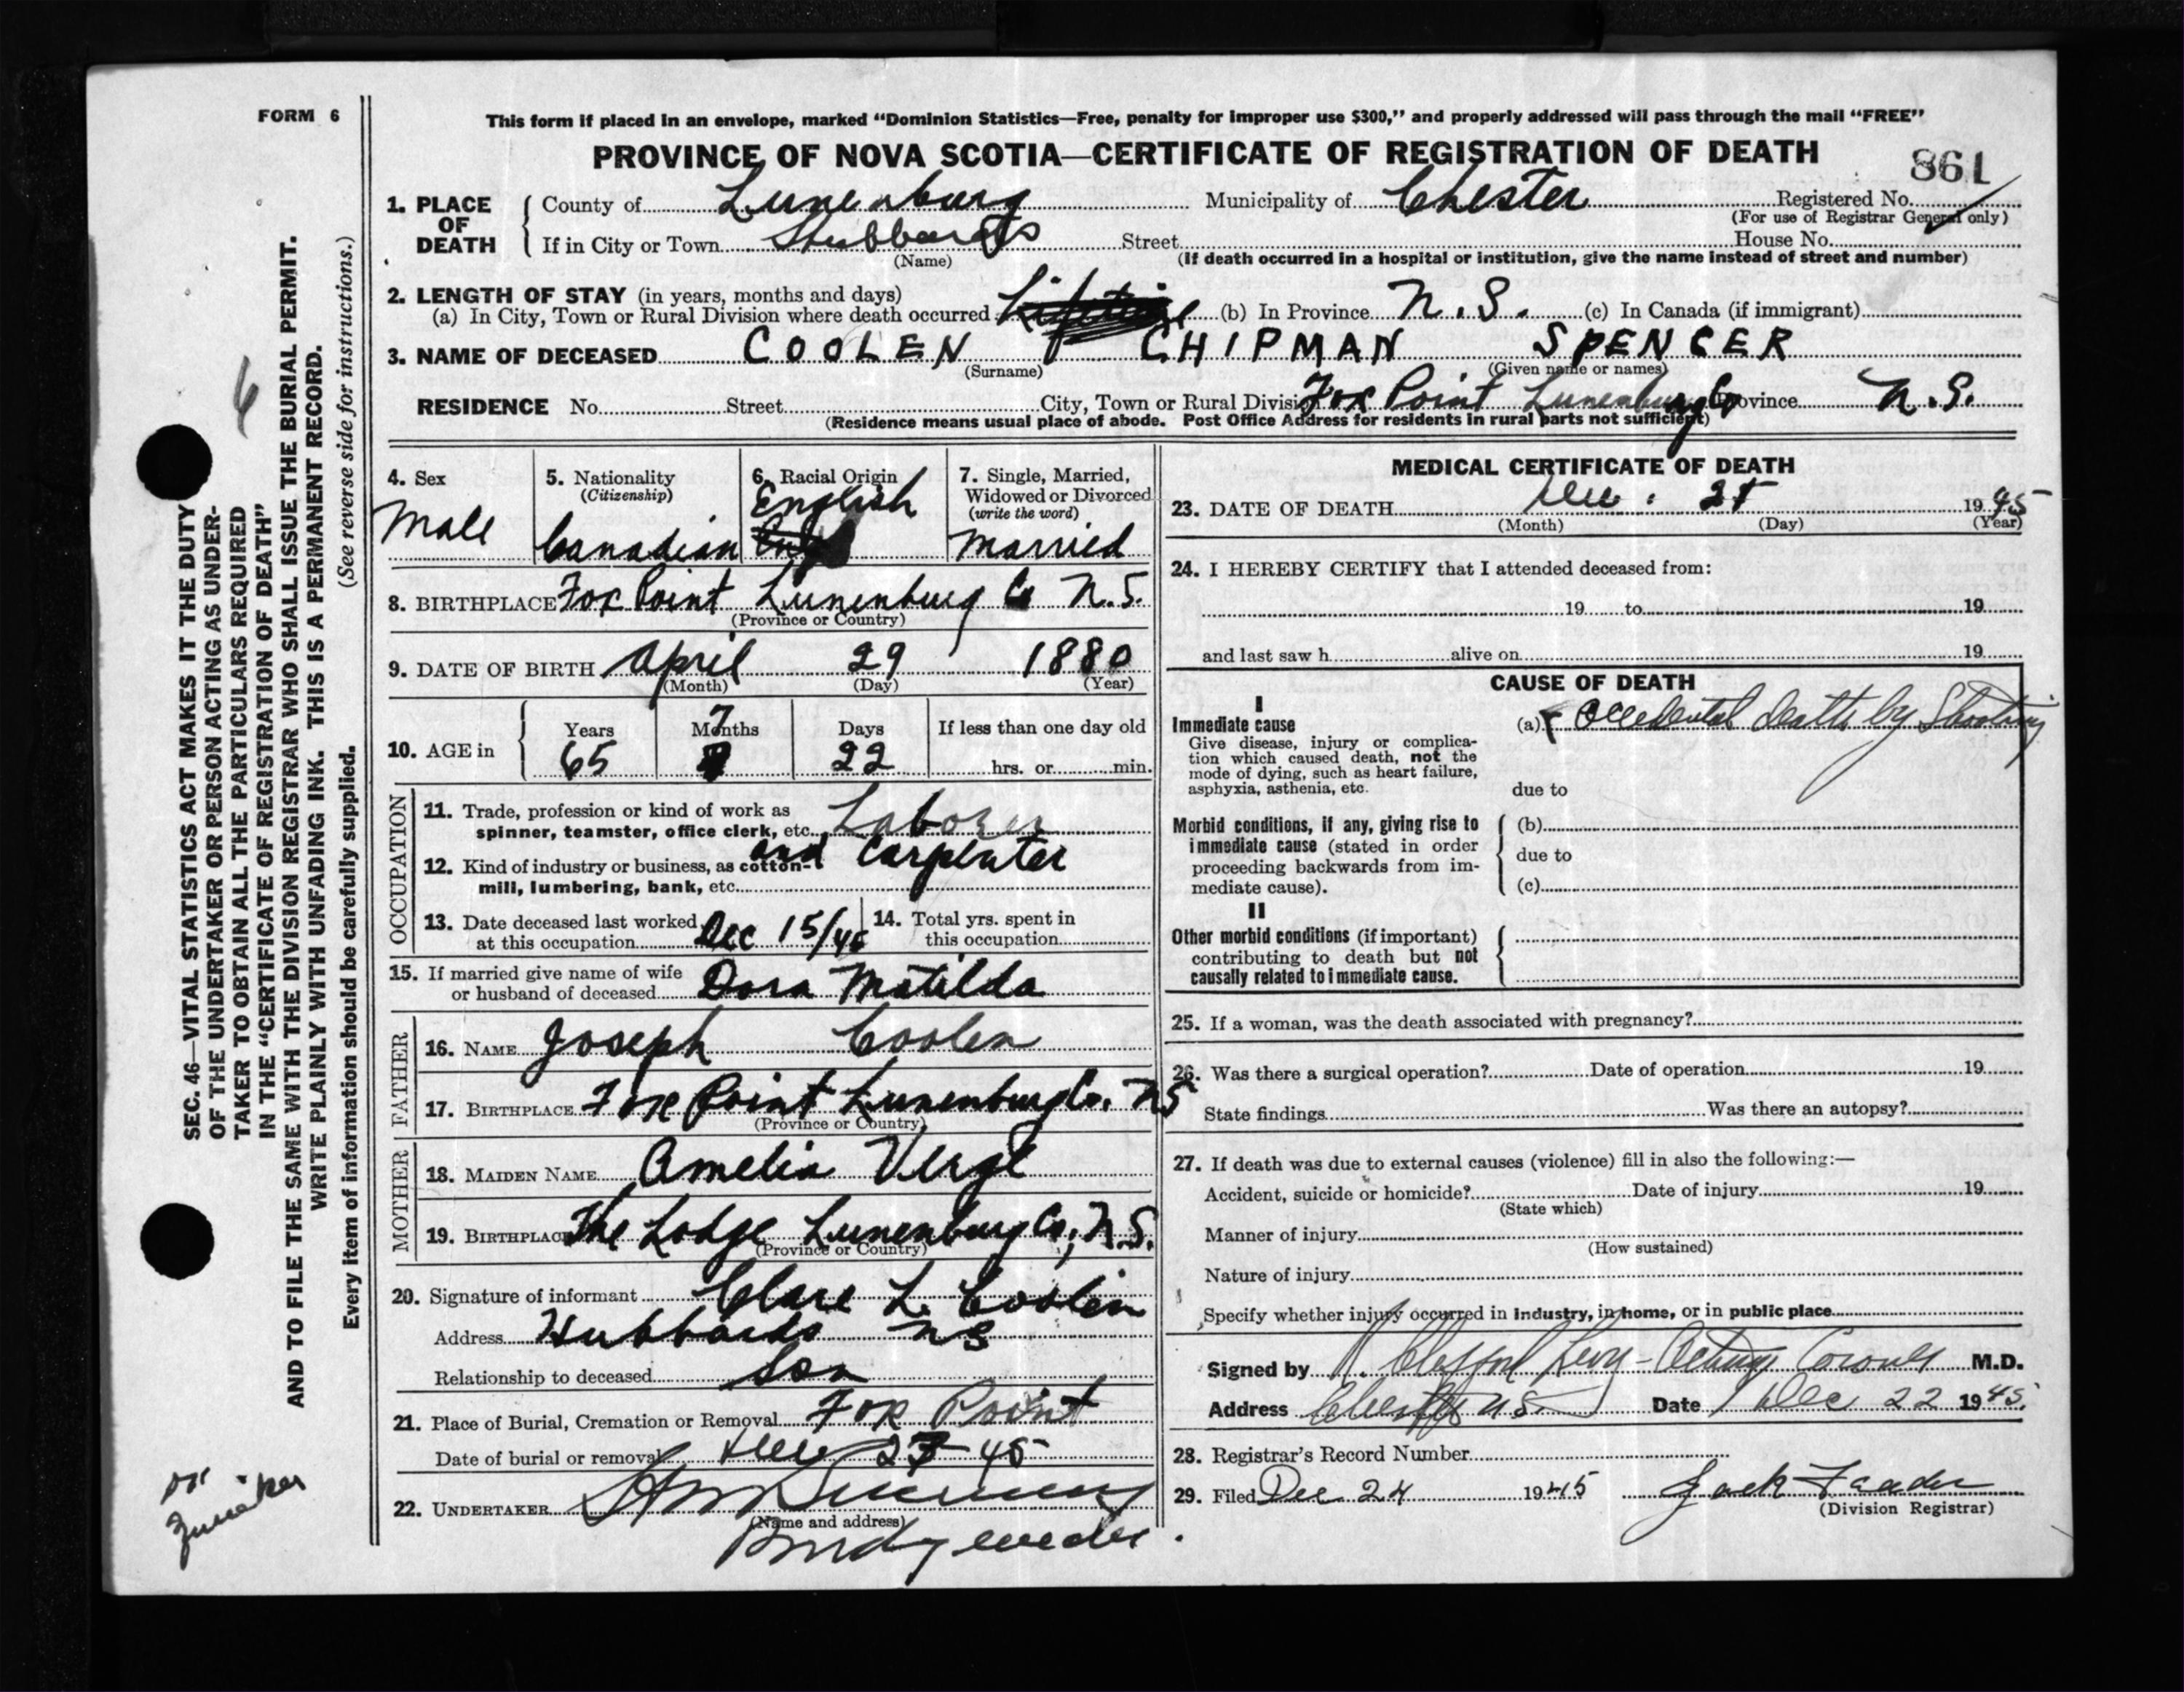 FORM 6
This form if placed in an envelope, marked “Dominion Statistics—Free, penalty for improper use $300,” and properly addressed will pass through the mail “FREE”
PROVINCE OF NOVA SCOTIA—CERTIFICATE OF REGISTRATION OF DEATH
861
1. PLACE OF DEATH
County of Lunenburg Municipality of Chester Registered No.
(For use of Registrar General only)
If in City or Town Hubbards Street House No.
(Name) (If death occurred in a hospital or institution, give the name instead of street and number)
2. LENGTH OF STAY (in years, months and days)
(a) In City, Town or Rural Division where death occurred Lifetime (b) In Province N.S. (c) In Canada (if immigrant)
3. NAME OF DECEASED COOLEN CHIPMAN SPENCER
(Surname) (Given name or names)
RESIDENCE No. Street City, Town or Rural Division Fox Point Lunenburg Co Province N.S.
(Residence means usual place of abode. Post Office Address for residents in rural parts not sufficient)
4. Sex
Male
5. Nationality
(Citizenship)
Canadian
6. Racial Origin
English
7. Single, Married,
Widowed or Divorced
(write the word)
Married
8. BIRTHPLACE Fox Point Lunenburg Co N.S.
(Province or Country)
9. DATE OF BIRTH April 29 1880
(Month) (Day) (Year)
10. AGE in
Years Months Days If less than one day old
65 7 22 hrs. or min.
OCCUPATION
11. Trade, profession or kind of work as
spinner, teamster, office clerk, etc. Laborer
and Carpenter
12. Kind of industry or business, as cotton-
mill, lumbering, bank, etc.
13. Date deceased last worked
at this occupation Dec 15/45
14. Total yrs. spent in
this occupation
15. If married give name of wife
or husband of deceased Dora Matilda
FATHER
16. NAME Joseph Coolen
17. BIRTHPLACE Fox Point Lunenburg Co. NS
(Province or Country)
MOTHER
18. MAIDEN NAME Amelia Verge
19. BIRTHPLACE The Lodge Lunenburg Co; N.S.
(Province or Country)
20. Signature of informant Clare L. Coolen
Address Hubbards NS
Relationship to deceased Son
21. Place of Burial, Cremation or Removal Fox Point
Date of burial or removal Dec 23 45
22. UNDERTAKER
(Name and address)
Bridgewater.
MEDICAL CERTIFICATE OF DEATH
23. DATE OF DEATH Dec. 21 1945
(Month) (Day) (Year)
24. I HEREBY CERTIFY that I attended deceased from:
19 to 19
and last saw h alive on 19
CAUSE OF DEATH
I
Immediate cause
Give disease, injury or complica-
tion which caused death, not the
mode of dying, such as heart failure,
asphyxia, asthenia, etc.
(a) Accidental death by Shooting
due to
Morbid conditions, if any, giving rise to
immediate cause (stated in order
proceeding backwards from im-
mediate cause).
(b)
due to
(c)
II
Other morbid conditions (if important)
contributing to death but not
causally related to immediate cause.
25. If a woman, was the death associated with pregnancy?
26. Was there a surgical operation? Date of operation 19
State findings Was there an autopsy?
27. If death was due to external causes (violence) fill in also the following:—
Accident, suicide or homicide? Date of injury 19
(State which)
Manner of injury
(How sustained)
Nature of injury
Specify whether injury occurred in industry, in home, or in public place
Signed by Clifford Levy - Acting Coroner M.D.
Address Chester NS. Date Dec 22 1945.
28. Registrar's Record Number
29. Filed Dec 24 1945 Jack
(Division Registrar)
SEC. 46—VITAL STATISTICS ACT MAKES IT THE DUTY
OF THE UNDERTAKER OR PERSON ACTING AS UNDER-
TAKER TO OBTAIN ALL THE PARTICULARS REQUIRED
IN THE “CERTIFICATE OF REGISTRATION OF DEATH”
AND TO FILE THE SAME WITH THE DIVISION REGISTRAR WHO SHALL ISSUE THE BURIAL PERMIT.
WRITE PLAINLY WITH UNFADING INK. THIS IS A PERMANENT RECORD.
Every item of information should be carefully supplied. (See reverse side for instructions.)
6